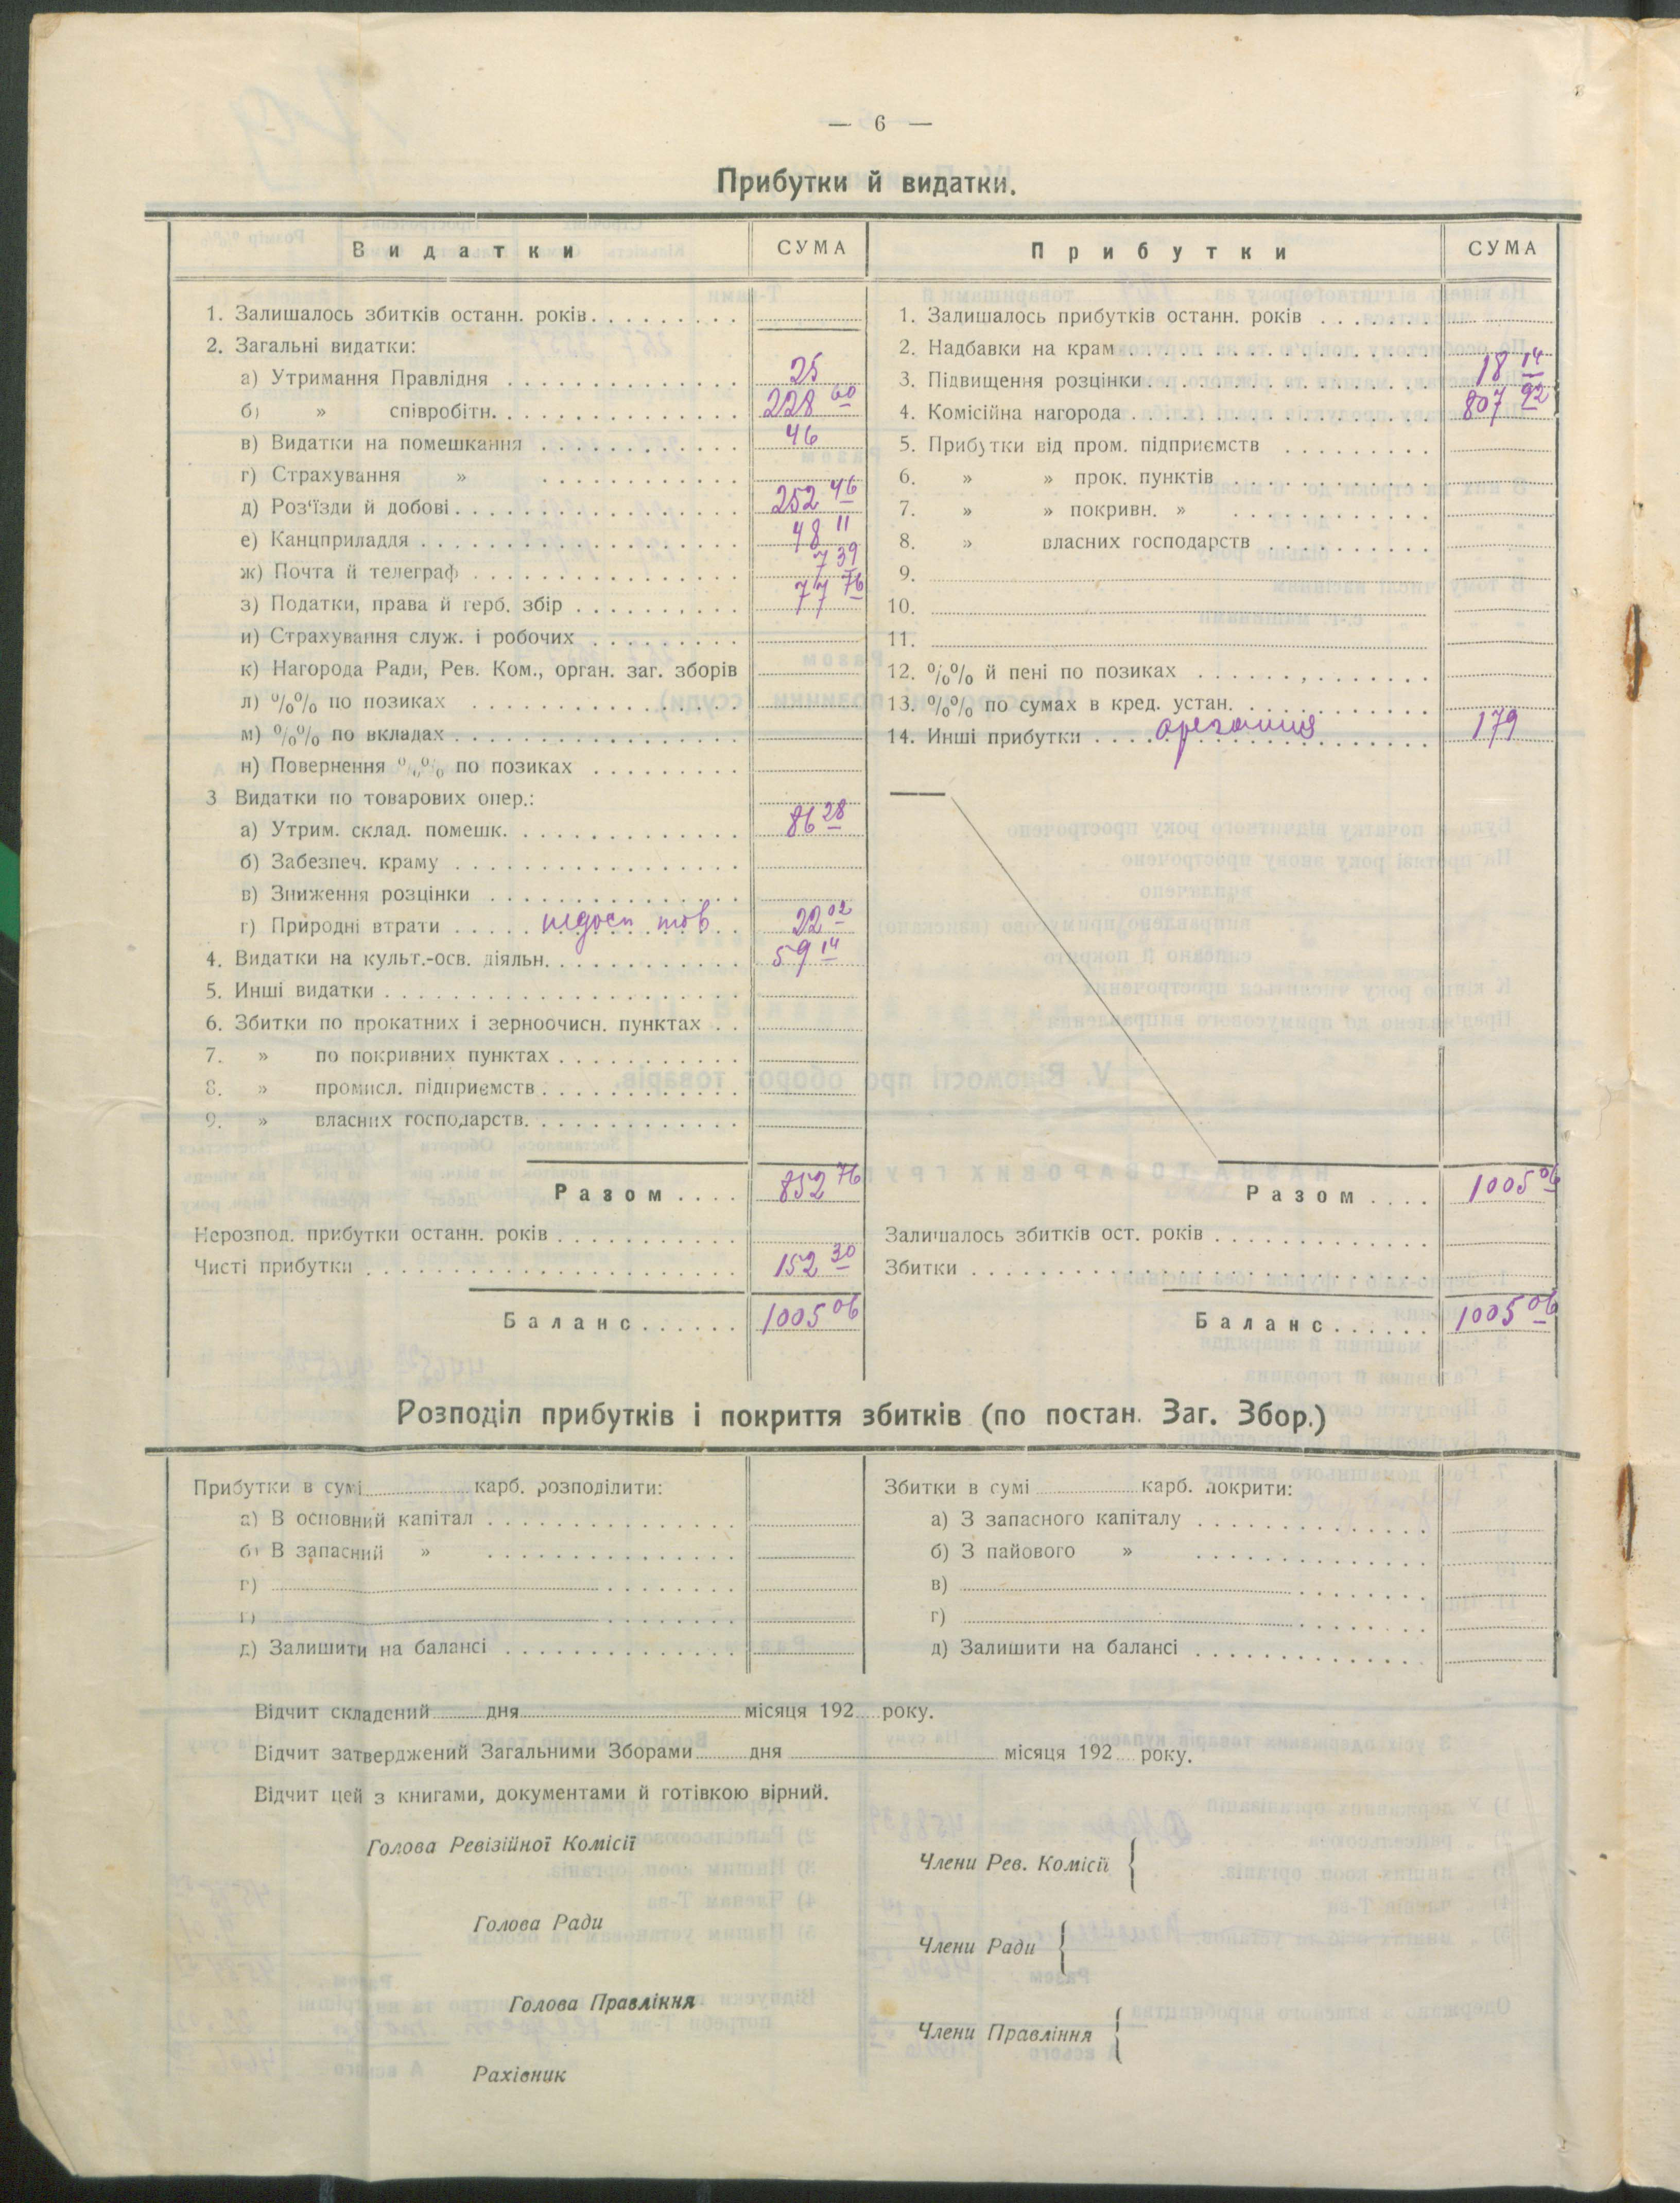 — 6 —
Прибутки й видатки.
Видатки СУМА Прибутки СУМА
1. Залишалось збитків останн. років
2. Загальні видатки:
а) Утримання Правлідня 25
б) » співробітн. 228 60
в) Видатки на помешкання 46
г) Страхування »
д) Роз'їзди й добові 252 46
е) Канцприладдя 48 11
ж) Почта й телеграф 7 39
з) Податки, права й герб. збір 77 76
и) Страхування служ. і робочих
к) Нагорода Ради, Рев. Ком., орган. заг. зборів
л) %% по позиках
м) %% по вкладах
н) Повернення %% по позиках
3 Видатки по товарових опер.:
а) Утрим. склад. помешк. 86 28
б) Забезпеч. краму
в) Зниження розцінки
г) Природні втрати недост тов 22 02
4. Видатки на культ.-осв. діяльн. 59 14
5. Инші видатки
6. Збитки по прокатних і зерноочисн. пунктах
7. » по покривних пунктах
8. » промисл. підприємств
9. » власних господарств.
Разом 852 76
Нерозпод. прибутки останн. років
Чисті прибутки 152 30
Баланс 1005 06
1. Залишалось прибутків останн. років
2. Надбавки на крам
3. Підвищення розцінки 18 14
4. Комісійна нагорода 807 92
5. Прибутки від пром. підприємств
6. » » прок. пунктів
7. » » покривн. »
8. » власних господарств
9.
10.
11.
12. %% й пені по позиках
13. %% по сумах в кред. устан.
14. Инші прибутки 179
Разом 1005 06
Залишалось збитків ост. років
Збитки
Баланс 1005 06
Розподіл прибутків і покриття збитків (по постан. Заг. Збор.)
Прибутки в сумі карб. розподілити:
а) В основний капітал
б) В запасний »
г)
д) Залишити на балансі
Збитки в сумі карб. покрити:
а) З запасного капіталу
б) З пайового »
в)
г)
д) Залишити на балансі
Відчит складений дня місяця 192 року.
Відчит затверджений Загальними Зборами дня місяця 192 року.
Відчит цей з книгами, документами й готівкою вірний.
Голова Ревізійної Комісії
Члени Рев. Комісії
Голова Ради
Члени Ради
Голова Правління
Члени Правління
Рахівник